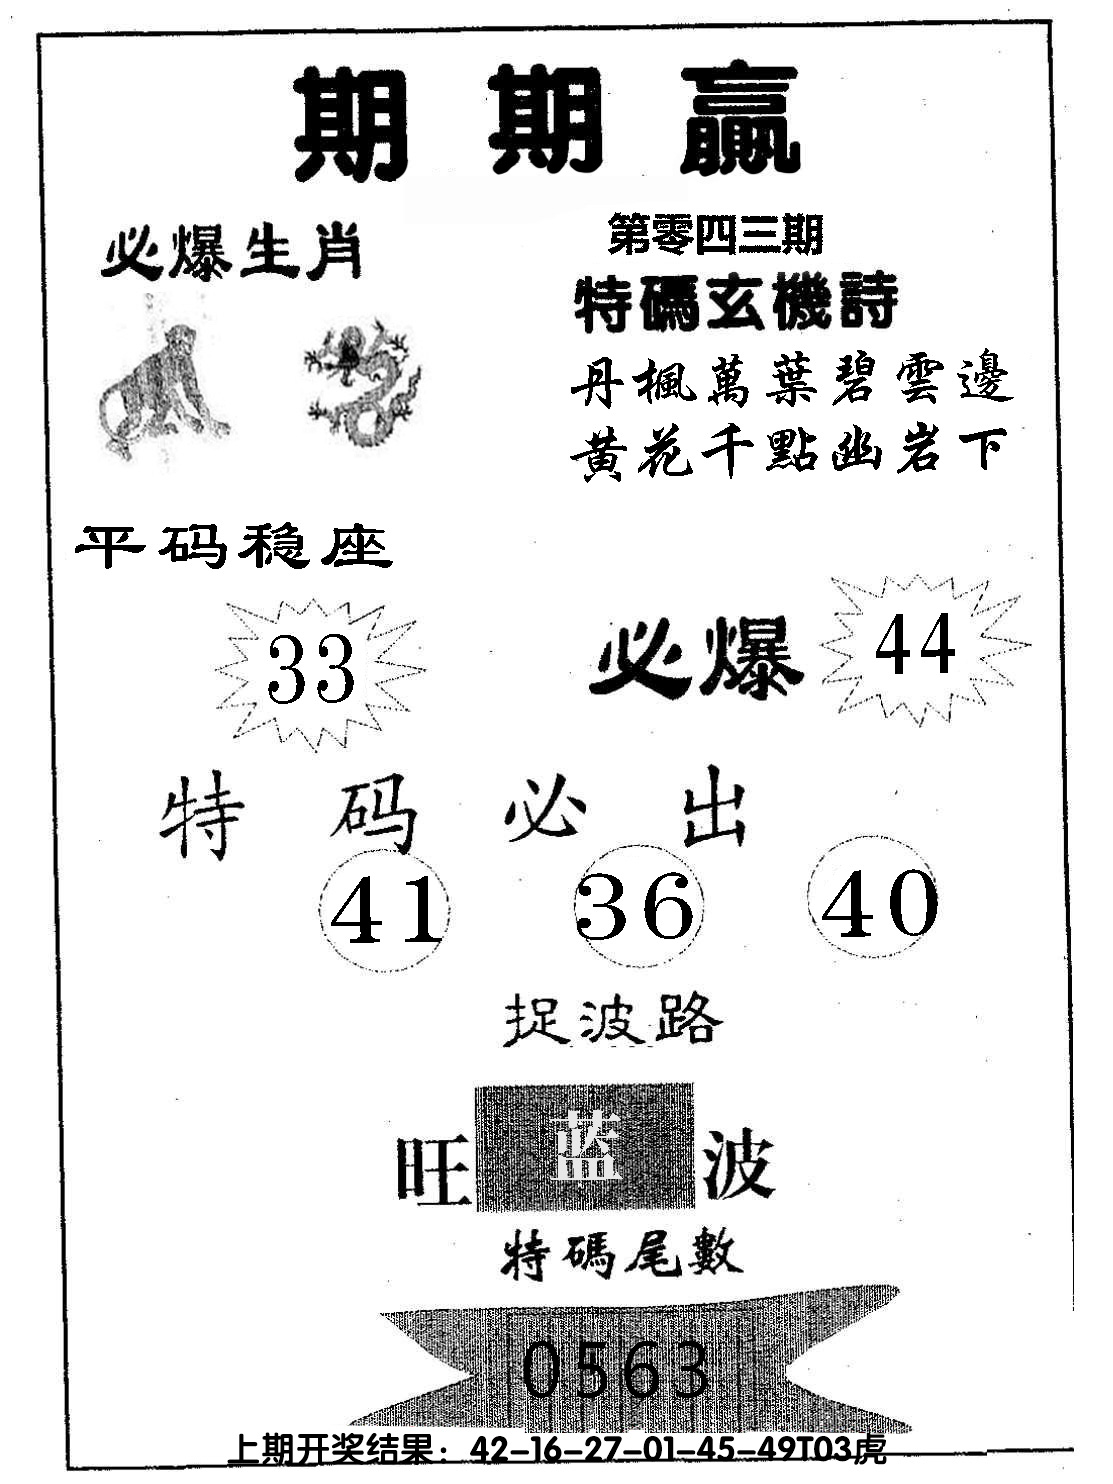 期期贏
必爆生肖
第零四三期
特碼玄機詩
丹楓萬葉碧雲邊
黃花千點幽岩下
平码稳座
33
必爆
44
特码必出
41 36 40
捉波路
旺蓝波
特碼尾數
0563
上期开奖结果：42-16-27-01-45-49T03虎